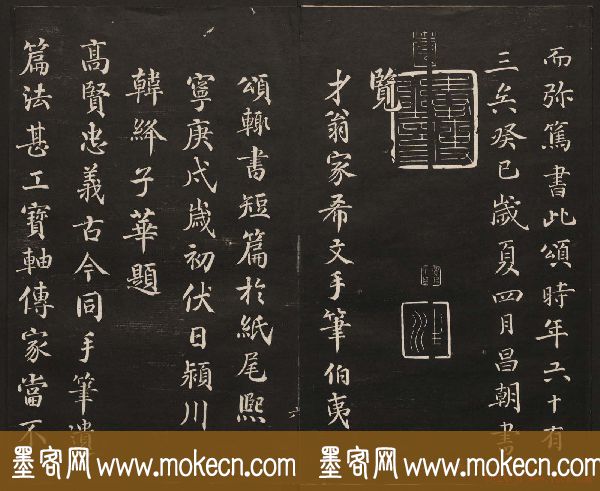 而弥篤書此頌時年六十有
三矣癸巳歲夏四月昌朝書
覽
才翁家希文手筆伯夷
頌輙書短篇於紙尾熈
寧庚戌歲初伏日潁川
韓絳子華題
高賢忠義古今同手筆遺
篇法甚工寶軸傳家當不
墨客网 www.mokecn.com 墨客网 www.mokecn.com